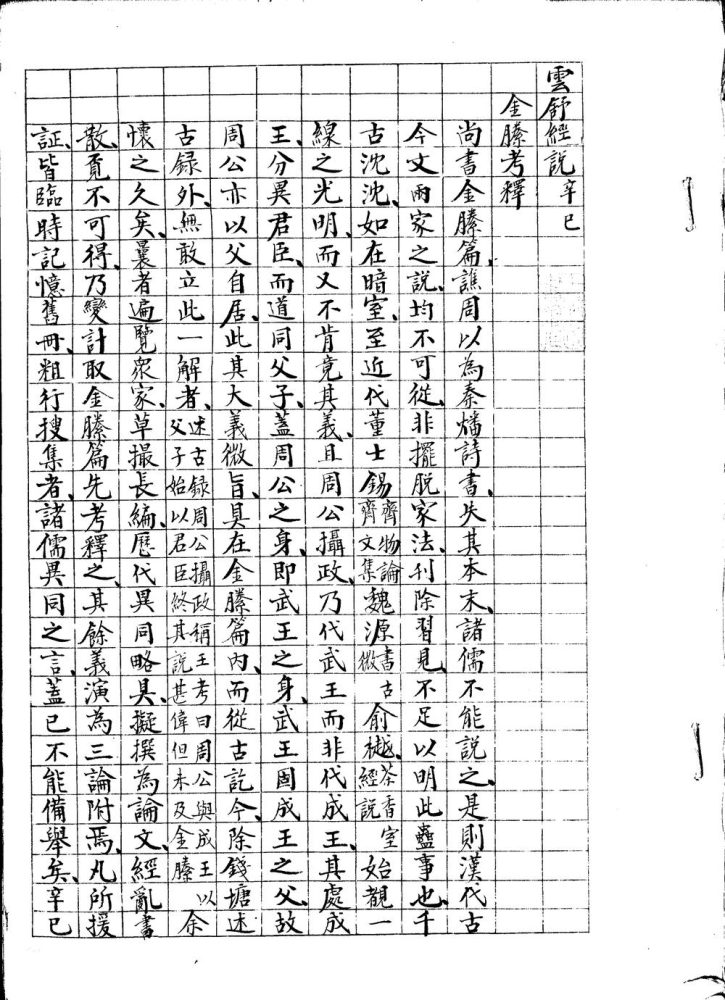 雲舒經說 辛巳
金縢考釋
尚書金縢篇、譙周以為秦燔詩書、失其本末、諸儒不能說之、是則漢代古
今文兩家之說、均不可從、非擺脫家法、刊除習見、不足以明此蠱事也、千
古沈沈、如在暗室、至近代董士錫齊物論齊文集魏源書古微俞樾茶香室經說始覩一
線之光明、而又不肯竟其義、且周公攝政、乃代武王而非代成王、其處成
王、分異君臣、而道同父子、蓋周公之身、即武王之身、武王固成王之父、故
周公亦以父自居、此其大義微旨、具在金縢篇內、而從古訖今、除錢塘述
古録外、無敢立此一解者、述古録周公攝政稱王考曰周公與成王以父子始以君臣終其說甚偉但未及金縢余
懷之久矣、曩者遍覽眾家、草撮長編、歷代異同略具、擬撰為論文、經亂書
散、覓不可得、乃變計取金縢篇先考釋之、其餘義演為三論附焉、凡所援
証、皆臨時記憶舊冊、粗行搜集者、諸儒異同之言、蓋已不能備舉矣、辛巳